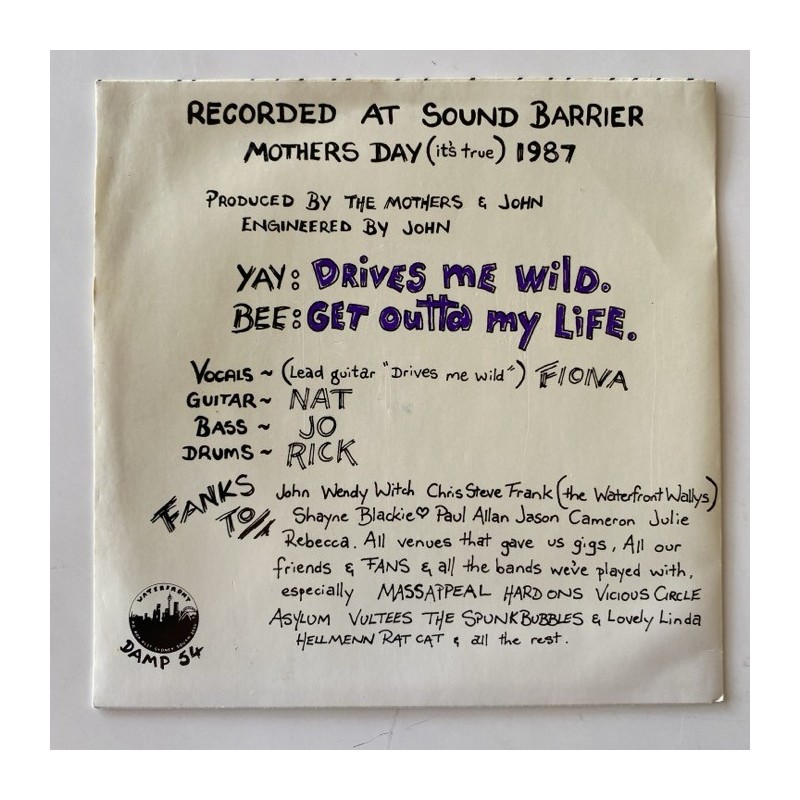 RECORDED AT SOUND BARRIER
MOTHERS DAY (it's true) 1987
PRODUCED BY THE MOTHERS & JOHN
ENGINEERED BY JOHN
YAY: DRIVES ME WILD.
BEE: GET OUTTA MY LIFE.
VOCALS ~ (Lead guitar "Drives me wild") FIONA
GUITAR ~ NAT
BASS ~ JO
DRUMS ~ RICK
FANKS TO//
John Wendy Witch Chris Steve Frank (the Waterfront Wallys)
Shayne Blackie♡ Paul Allan Jason Cameron Julie
Rebecca. All venues that gave us gigs, All our
friends & FANS & all the bands we've played with,
especially MASSAPPEAL HARD ONS VICIOUS CIRCLE
ASYLUM VULTEES THE SPUNKBUBBLES & Lovely Linda
HELLMENN RAT CAT & all the rest.
WATERFRONT
DAMP 54